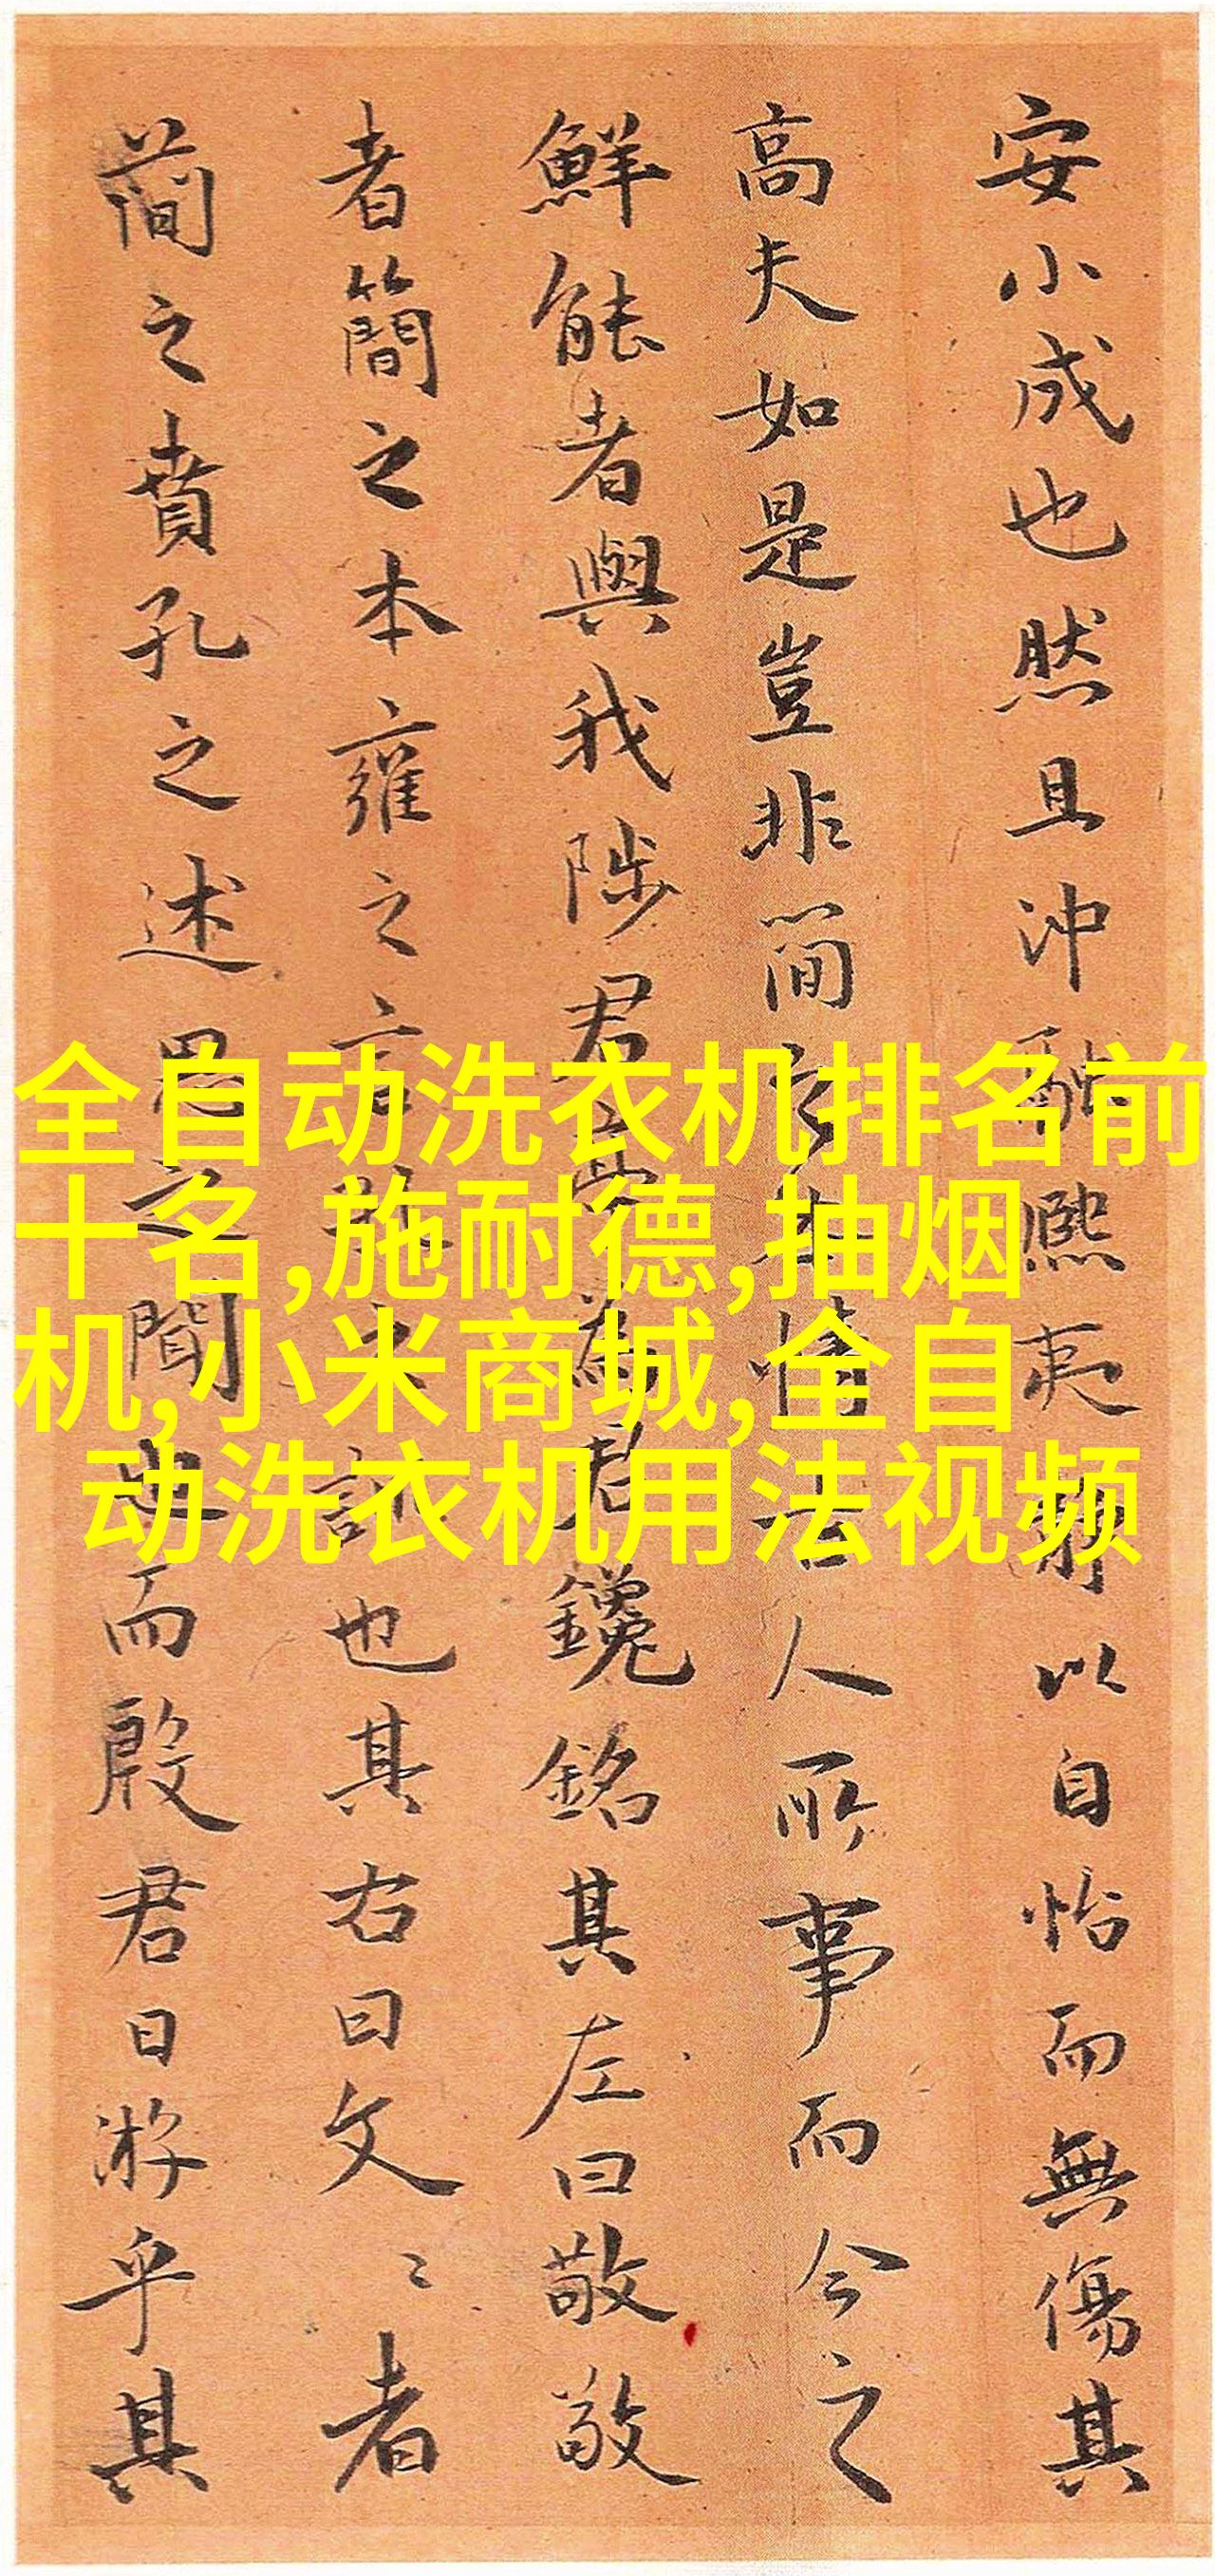 安小成也然且沖融熙夷以自怡而無傷其
高夫如是豈非簡本情古人所事而今之
鮮能者與我陟君為君鑱銘其左曰敬敬
者簡之本雍之言之訓也其右曰文〻者
簡之賁孔之述思之聞也而殷君日游乎其
全自动洗衣机排名前
十名,施耐德,抽烟
机,小米商城,全自
动洗衣机用法视频